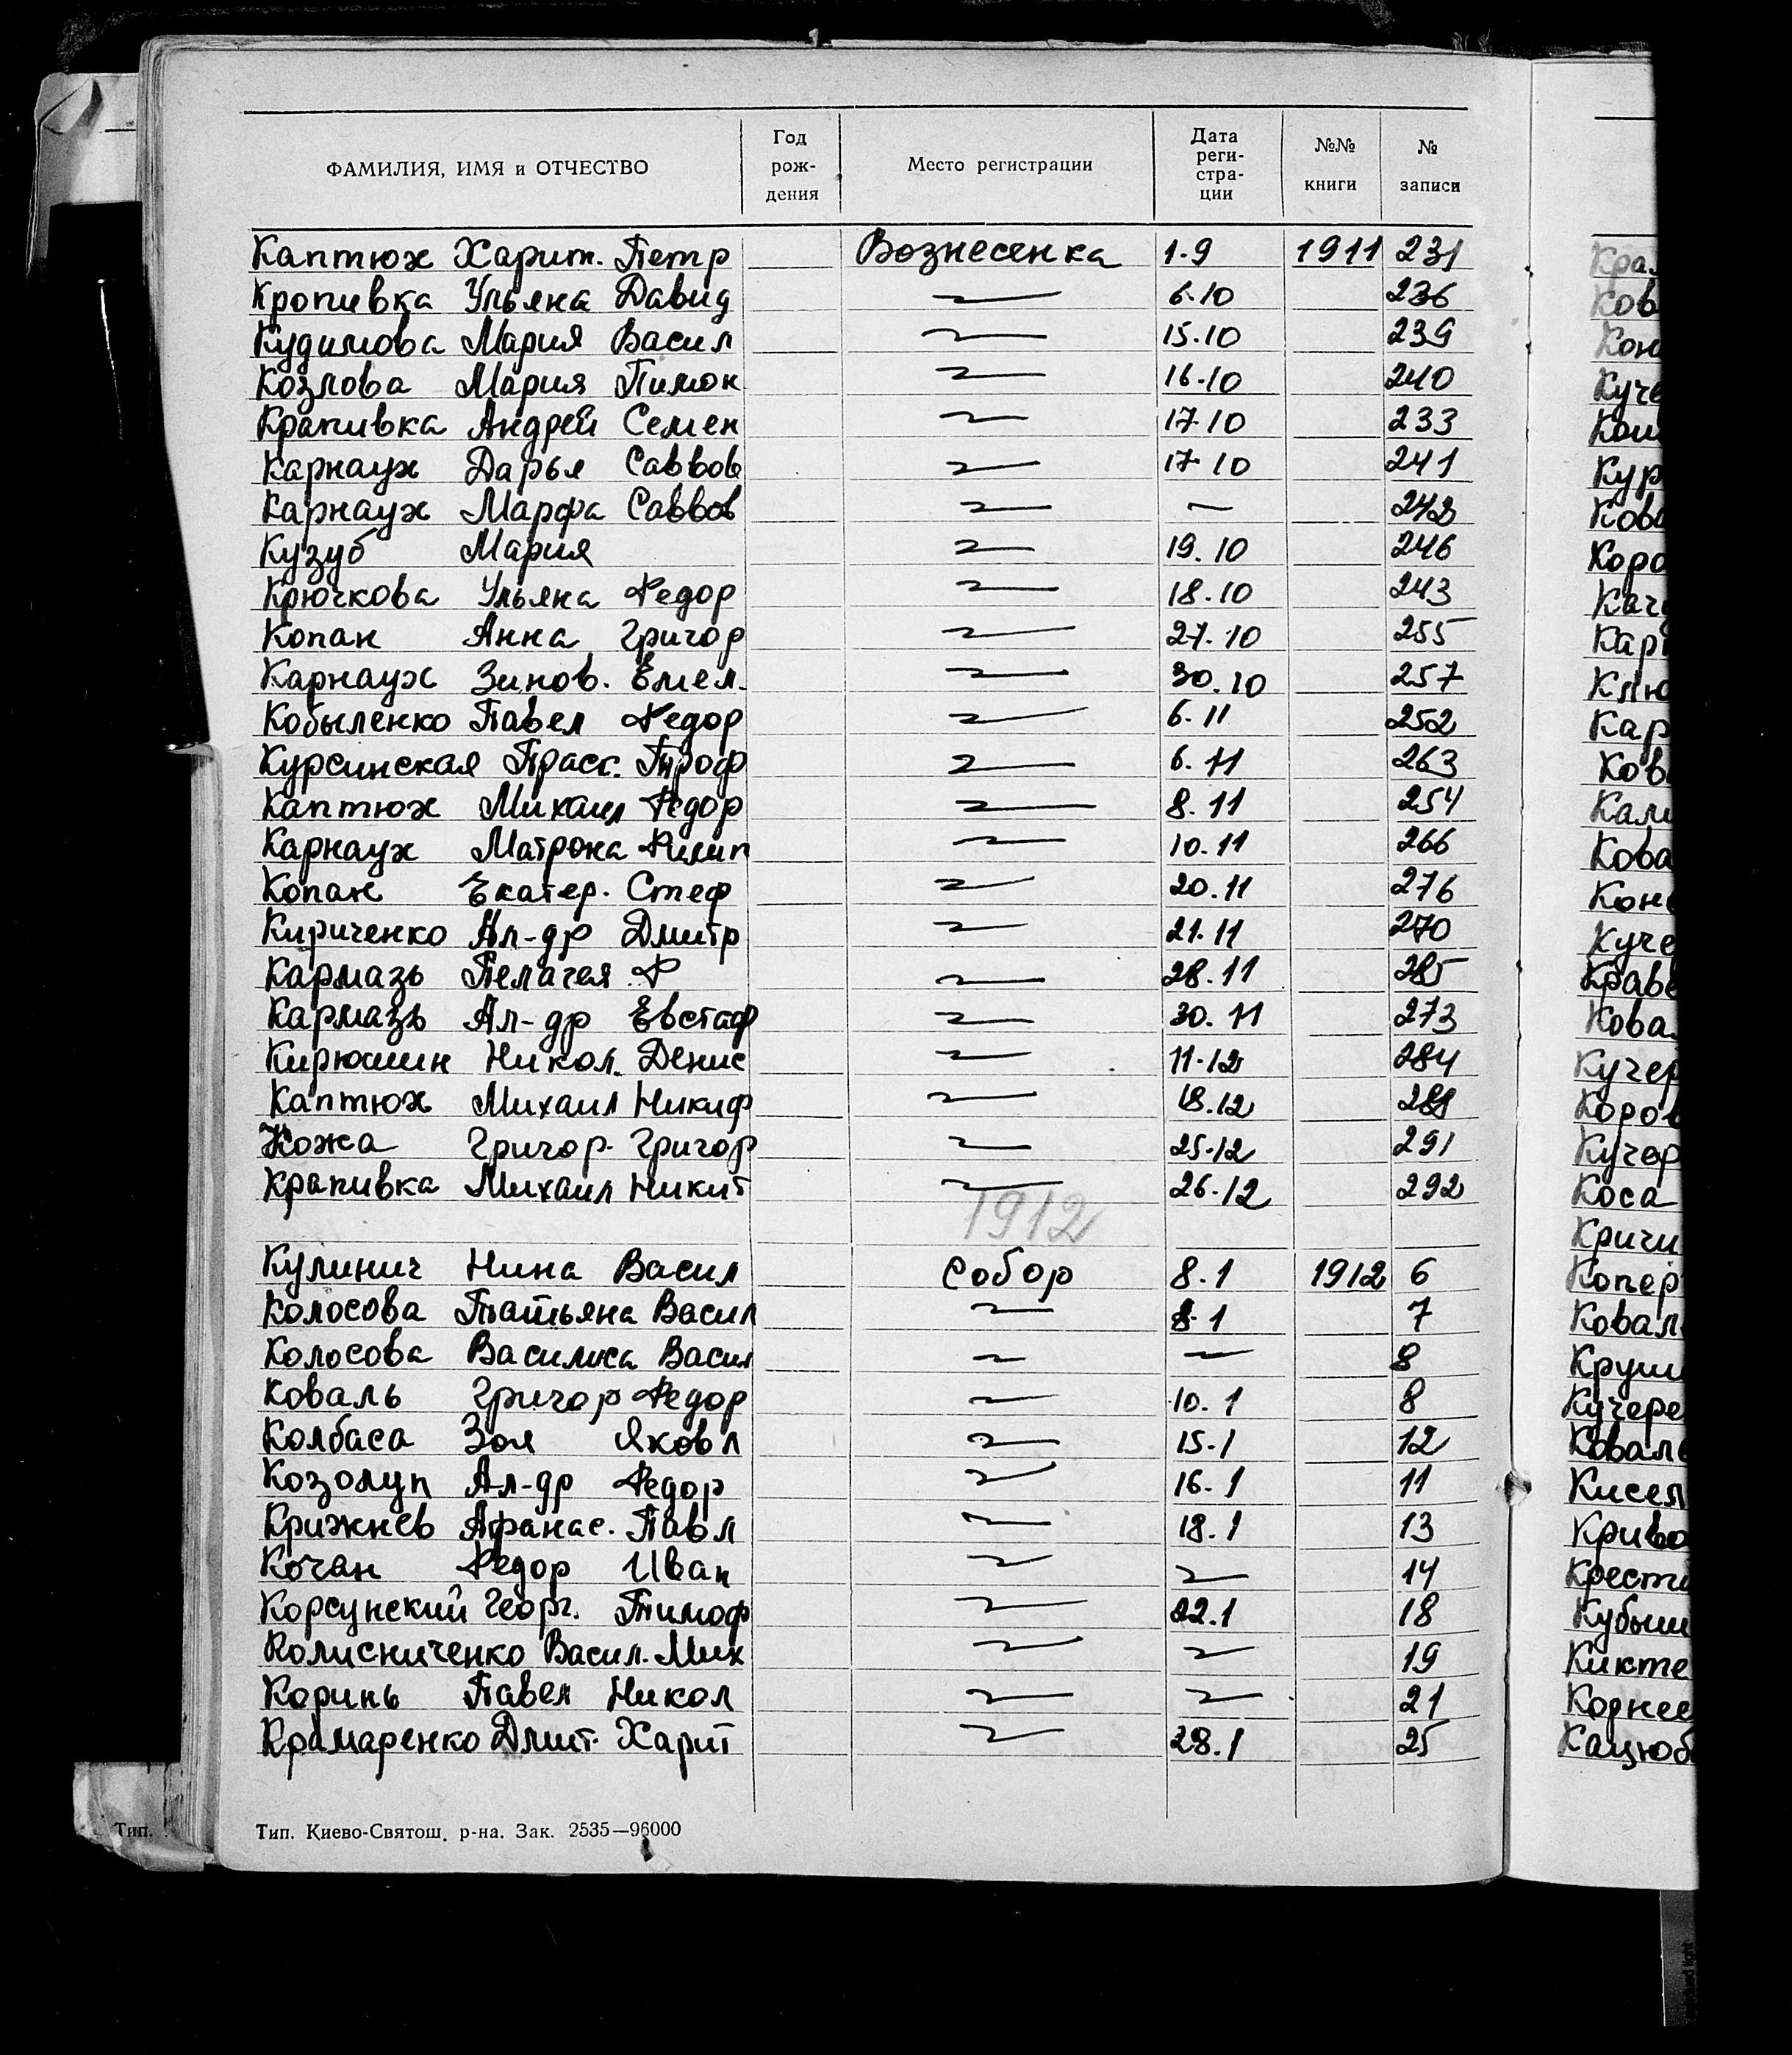 ФАМИЛИЯ, ИМЯ и ОТЧЕСТВО Год рож-дения Место регистрации Дата реги-стра-ции №№ книги № записи
Каптюх Харит. Петр Вознесенка 1.9 1911 231
Кропивка Ульяна Давид 6.10 236
Кудимова Мария Васил 15.10 239
Козлова Мария Пимон 16.10 240
Крапивка Андрей Семен 17.10 233
Карнаух Дарья Саввов 17.10 241
Карнаух Марфа Саввов — 242
Кузуб Мария 19.10 246
Крючкова Ульяна Федор 18.10 243
Копан Анна Григор 27.10 255
Карнаух Зинов. Емел. 30.10 257
Кобыленко Павел Федор 6.11 252
Курсинская Прасс. Троф 6.11 263
Каптюх Михаил Федор 8.11 254
Карнаух Матрона Филип 10.11 266
Копан Екатер. Стеф 20.11 276
Кириченко Ал-др Дмитр 21.11 270
Кармазь Пелагея Ф 28.11 285
Кармазь Ал-др Евстаф 30.11 273
Кирюшин Никол. Денис 11.12 284
Каптюх Михаил Никиф 18.12
Кожа Григор. Григор 25.12 291
Крапивка Михаил Никит 26.12 292
1912
Кулинич Нина Васил Собор 8.1 1912 6
Колосова Татьяна Васил 8.1 7
Колосова Василиса Васил — 8
Коваль Григор Федор 10.1 8
Колбаса Зоя Яковл 15.1 12
Козолуп Ал-др Федор 16.1 11
Крижнев Афанас. Павл 18.1 13
Кочан Федор Иван — 14
Корсунский Георг. Тимоф 22.1 18
Колисниченко Васил. Мих — 19
Коринь Павел Никол — 21
Крамаренко Дмит. Харит 28.1 25
Тип. Киево-Святош. р-на. Зак. 2535—96000
Тип.